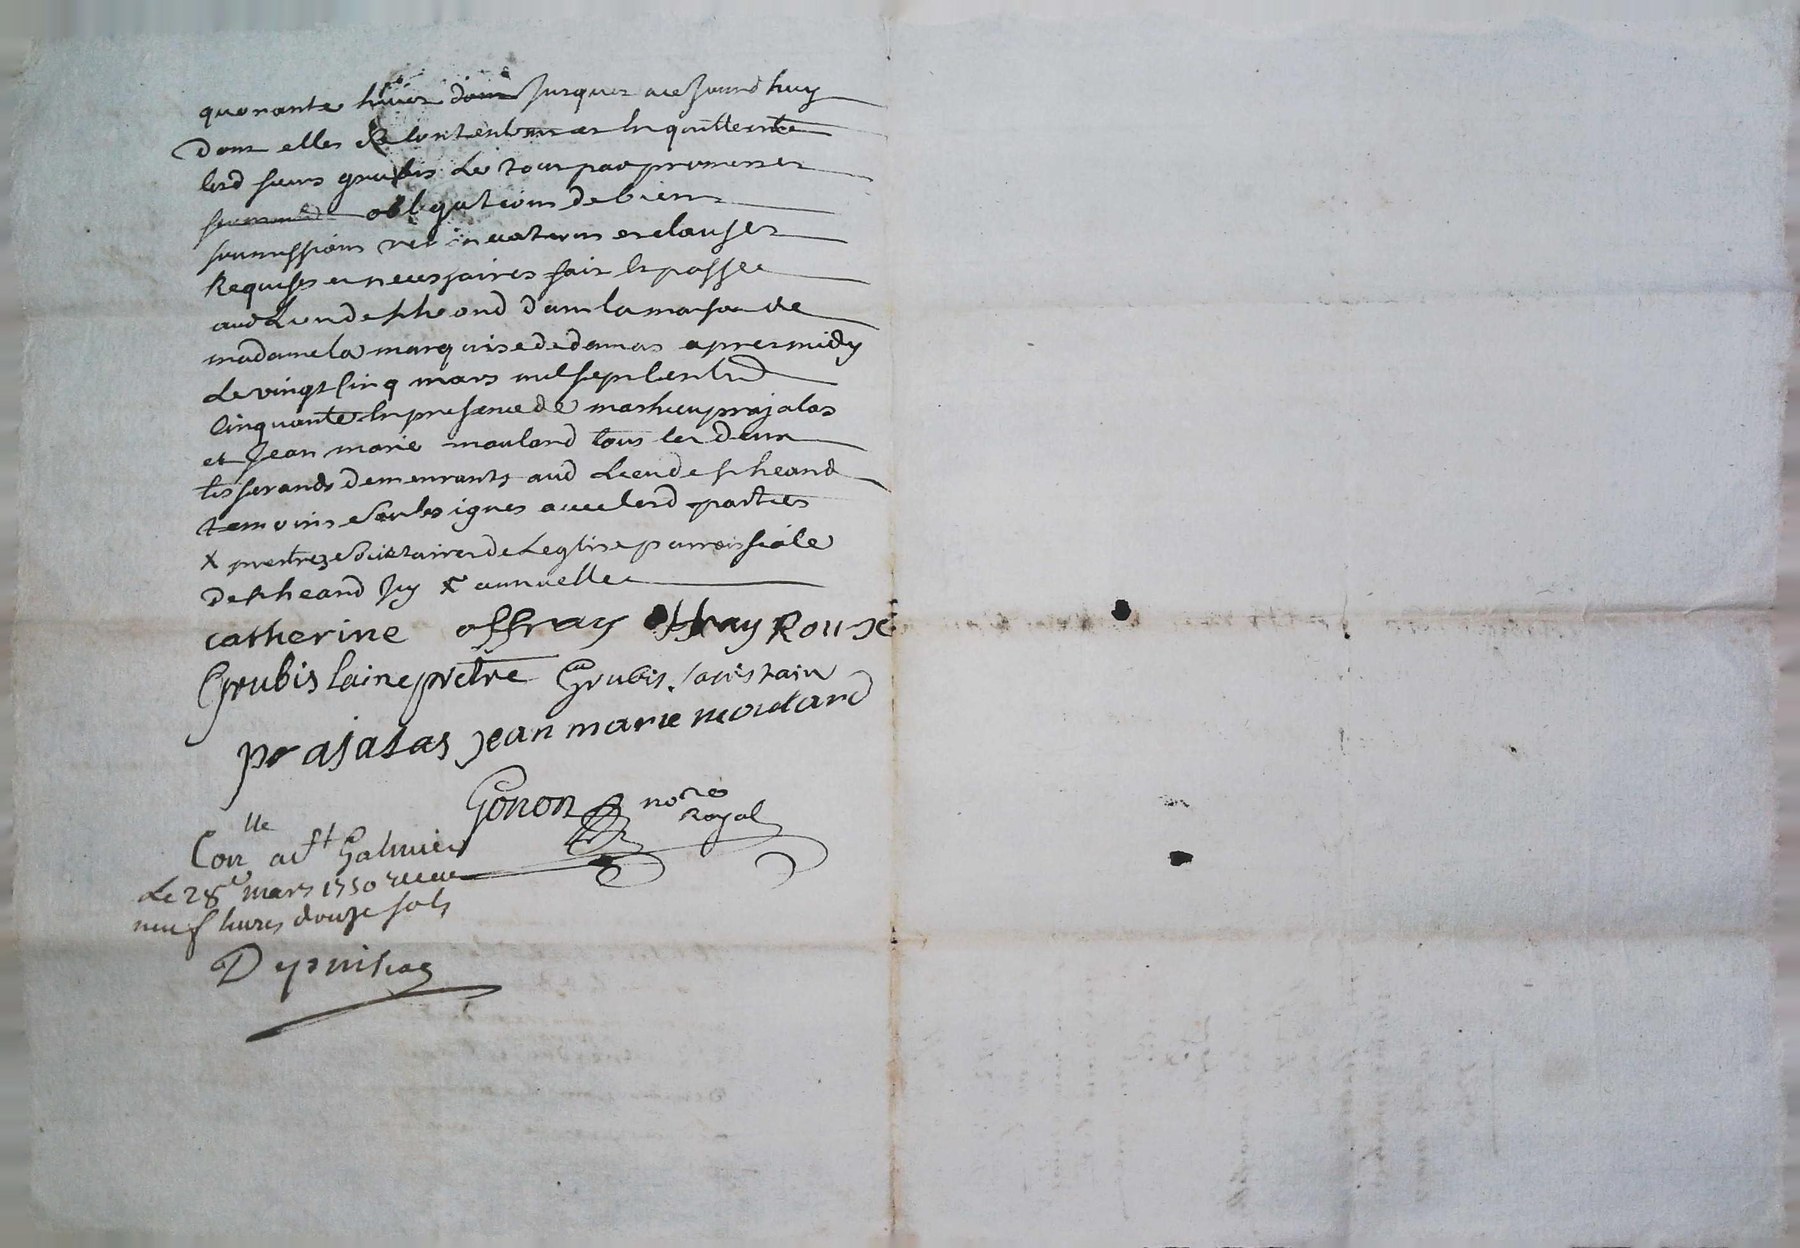 quarante livres dont jusques a ce jourd huy
dont elles se contentent et en quittent
lesd sieurs grubis Le tout par promesses
obligations de biens
soumissions renonciations et clauses
Requises et necessaires fait et passé
aud Lieu de st heand dans la maison de
madame la marquise de damas apres midy
Le vingt cinq mars mil sept cent
cinquante En presence de mathieu prajalas
et Jean marie moulard tous les deux
tisserands demeurants aud Lieu de st heand
temoins soussignes avec lesd parties
x prestres sociétaires de Leglise parroissiale
de st heand x annuelle
catherine offray offray Roux
Grubis laine prêtre Grubis sacristain
prajalas jean marie moulard
Gonon nore
Royal
Conlle a st Galmier
Le 28e mars 1750 receu
neuf livres douze sols